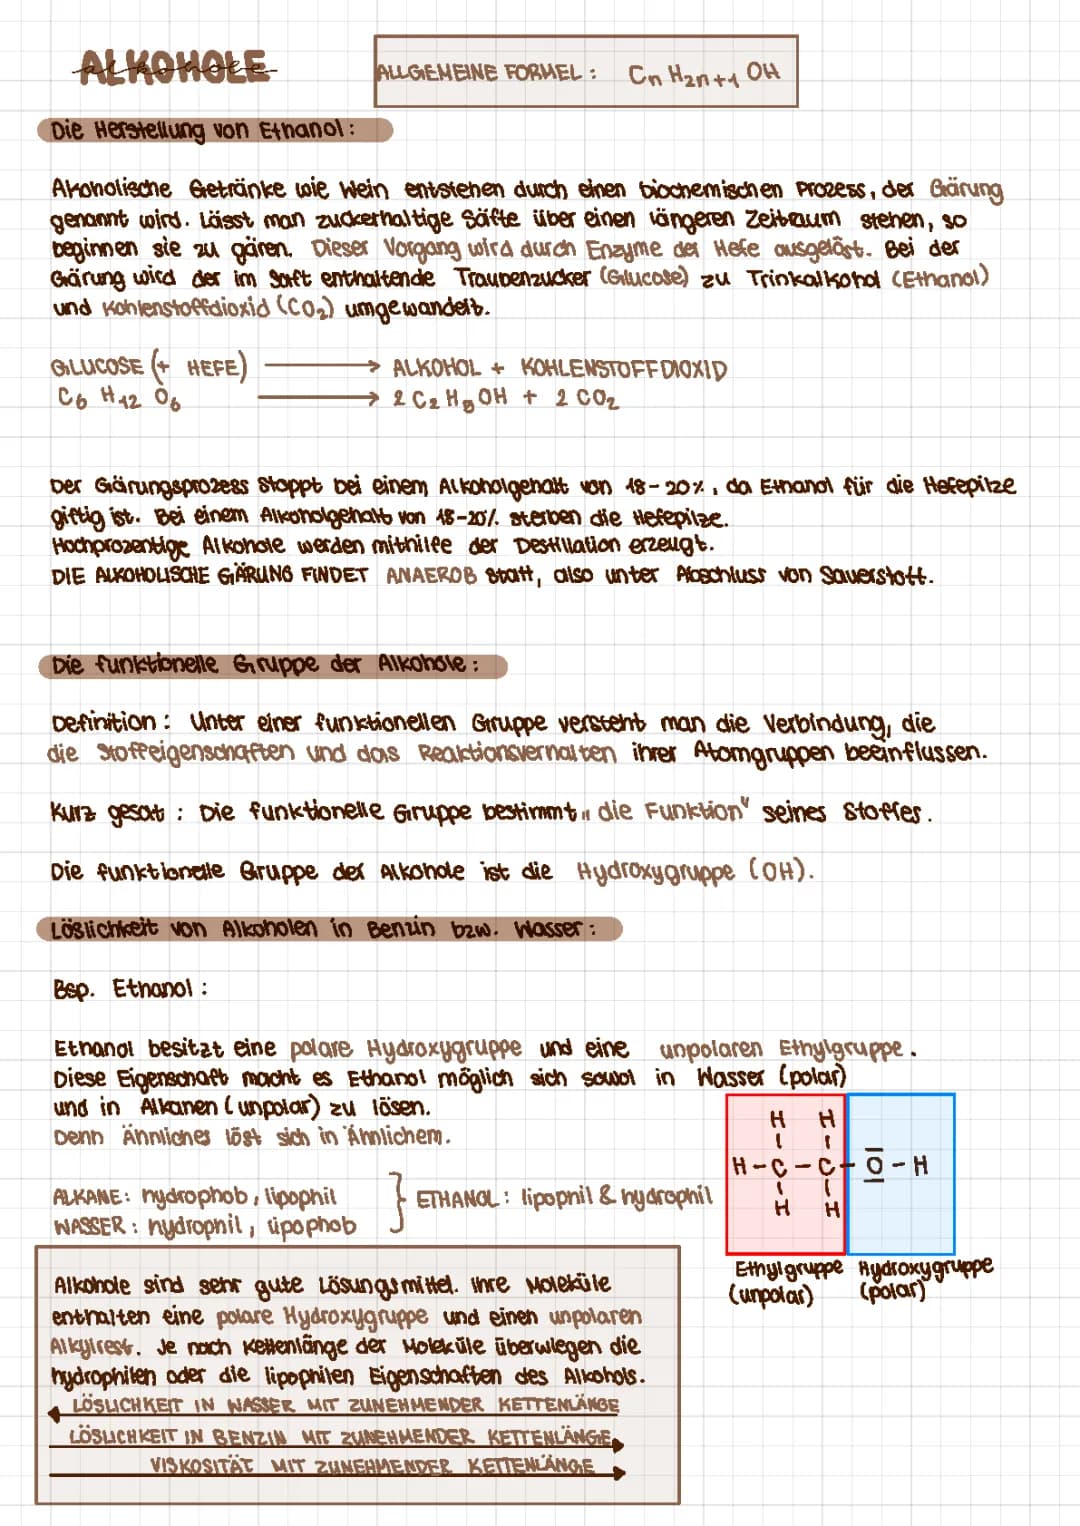 ALKOHOLE
alkohole
ALLGEMEINE FORMEL: CnH2n+1 OH
Die Herstellung von Ethanol:
Akoholische Getränke wie Wein entstehen durch einen biochemischen Prozess, der Gärung
genannt wird. Lässt man zuckerhaltige Säfte über einen längeren Zeitraum stehen, so
beginnen sie zu gären. Dieser Vorgang wird durch Enzyme der Hefe ausgelöst. Bei der
Gärung wird der im Saft enthaltende Traubenzucker (Glucose) zu Trinkalkohol (Ethanol)
und Kohlenstoffdioxid (CO₂) umgewandelt.
GLUCOSE (+ HEFE) → ALKOHOL + KOHLENSTOFFDIOXID
C6 H12 O6 → 2 C2H5OH + 2 CO2
Der Gärungsprozess stoppt bei einem Alkoholgehalt von 18-20%, da Ethanol für die Hefepilze
giftig ist. Bei einem Alkoholgehalt von 18-20% sterben die Hefepilze.
Hochprozentige Alkohole werden mithilfe der Destillation erzeugt.
DIE ALKOHOLISCHE GÄRUNG FINDET ANAEROB statt, also unter Abschluss von Sauerstoff.
Die funktionelle Gruppe der Alkohole:
Definition: Unter einer funktionellen Gruppe versteht man die Verbindung, die
die Stoffeigenschaften und das Reaktionsverhalten ihrer Atomgruppen beeinflussen.
Kurz gesagt: Die funktionelle Gruppe bestimmt „die Funktion" seines Stoffes.
Die funktionelle Gruppe der Alkohole ist die Hydroxygruppe (OH).
Löslichkeit von Alkoholen in Benzin bzw. Wasser:
Bsp. Ethanol:
Ethanol besitzt eine polare Hydroxygruppe und eine unpolaren Ethylgruppe.
Diese Eigenschaft macht es Ethanol möglich sich sowol in Wasser (polar)
und in Alkanen (unpolar) zu lösen.
Denn Ähnliches löst sich in Ähnlichem.
ALKANE: hydrophob, lipophil
WASSER: hydrophil, lipophob
} ETHANOL: lipophil & hydrophil
H H
H-C-C-O-H
H H
Ethylgruppe Hydroxygruppe
(unpolar) (polar)
Alkohole sind sehr gute Lösungsmittel. Ihre Moleküle
enthalten eine polare Hydroxygruppe und einen unpolaren
Alkylrest. Je nach Kettenlänge der Moleküle überwiegen die
hydrophilen oder die lipophilen Eigenschaften des Alkohols.
LÖSLICHKEIT IN WASSER MIT ZUNEHMENDER KETTENLÄNGE
LÖSLICHKEIT IN BENZIN MIT ZUNEHMENDER KETTENLÄNGE
VISKOSITÄT MIT ZUNEHMENDER KETTENLÄNGE